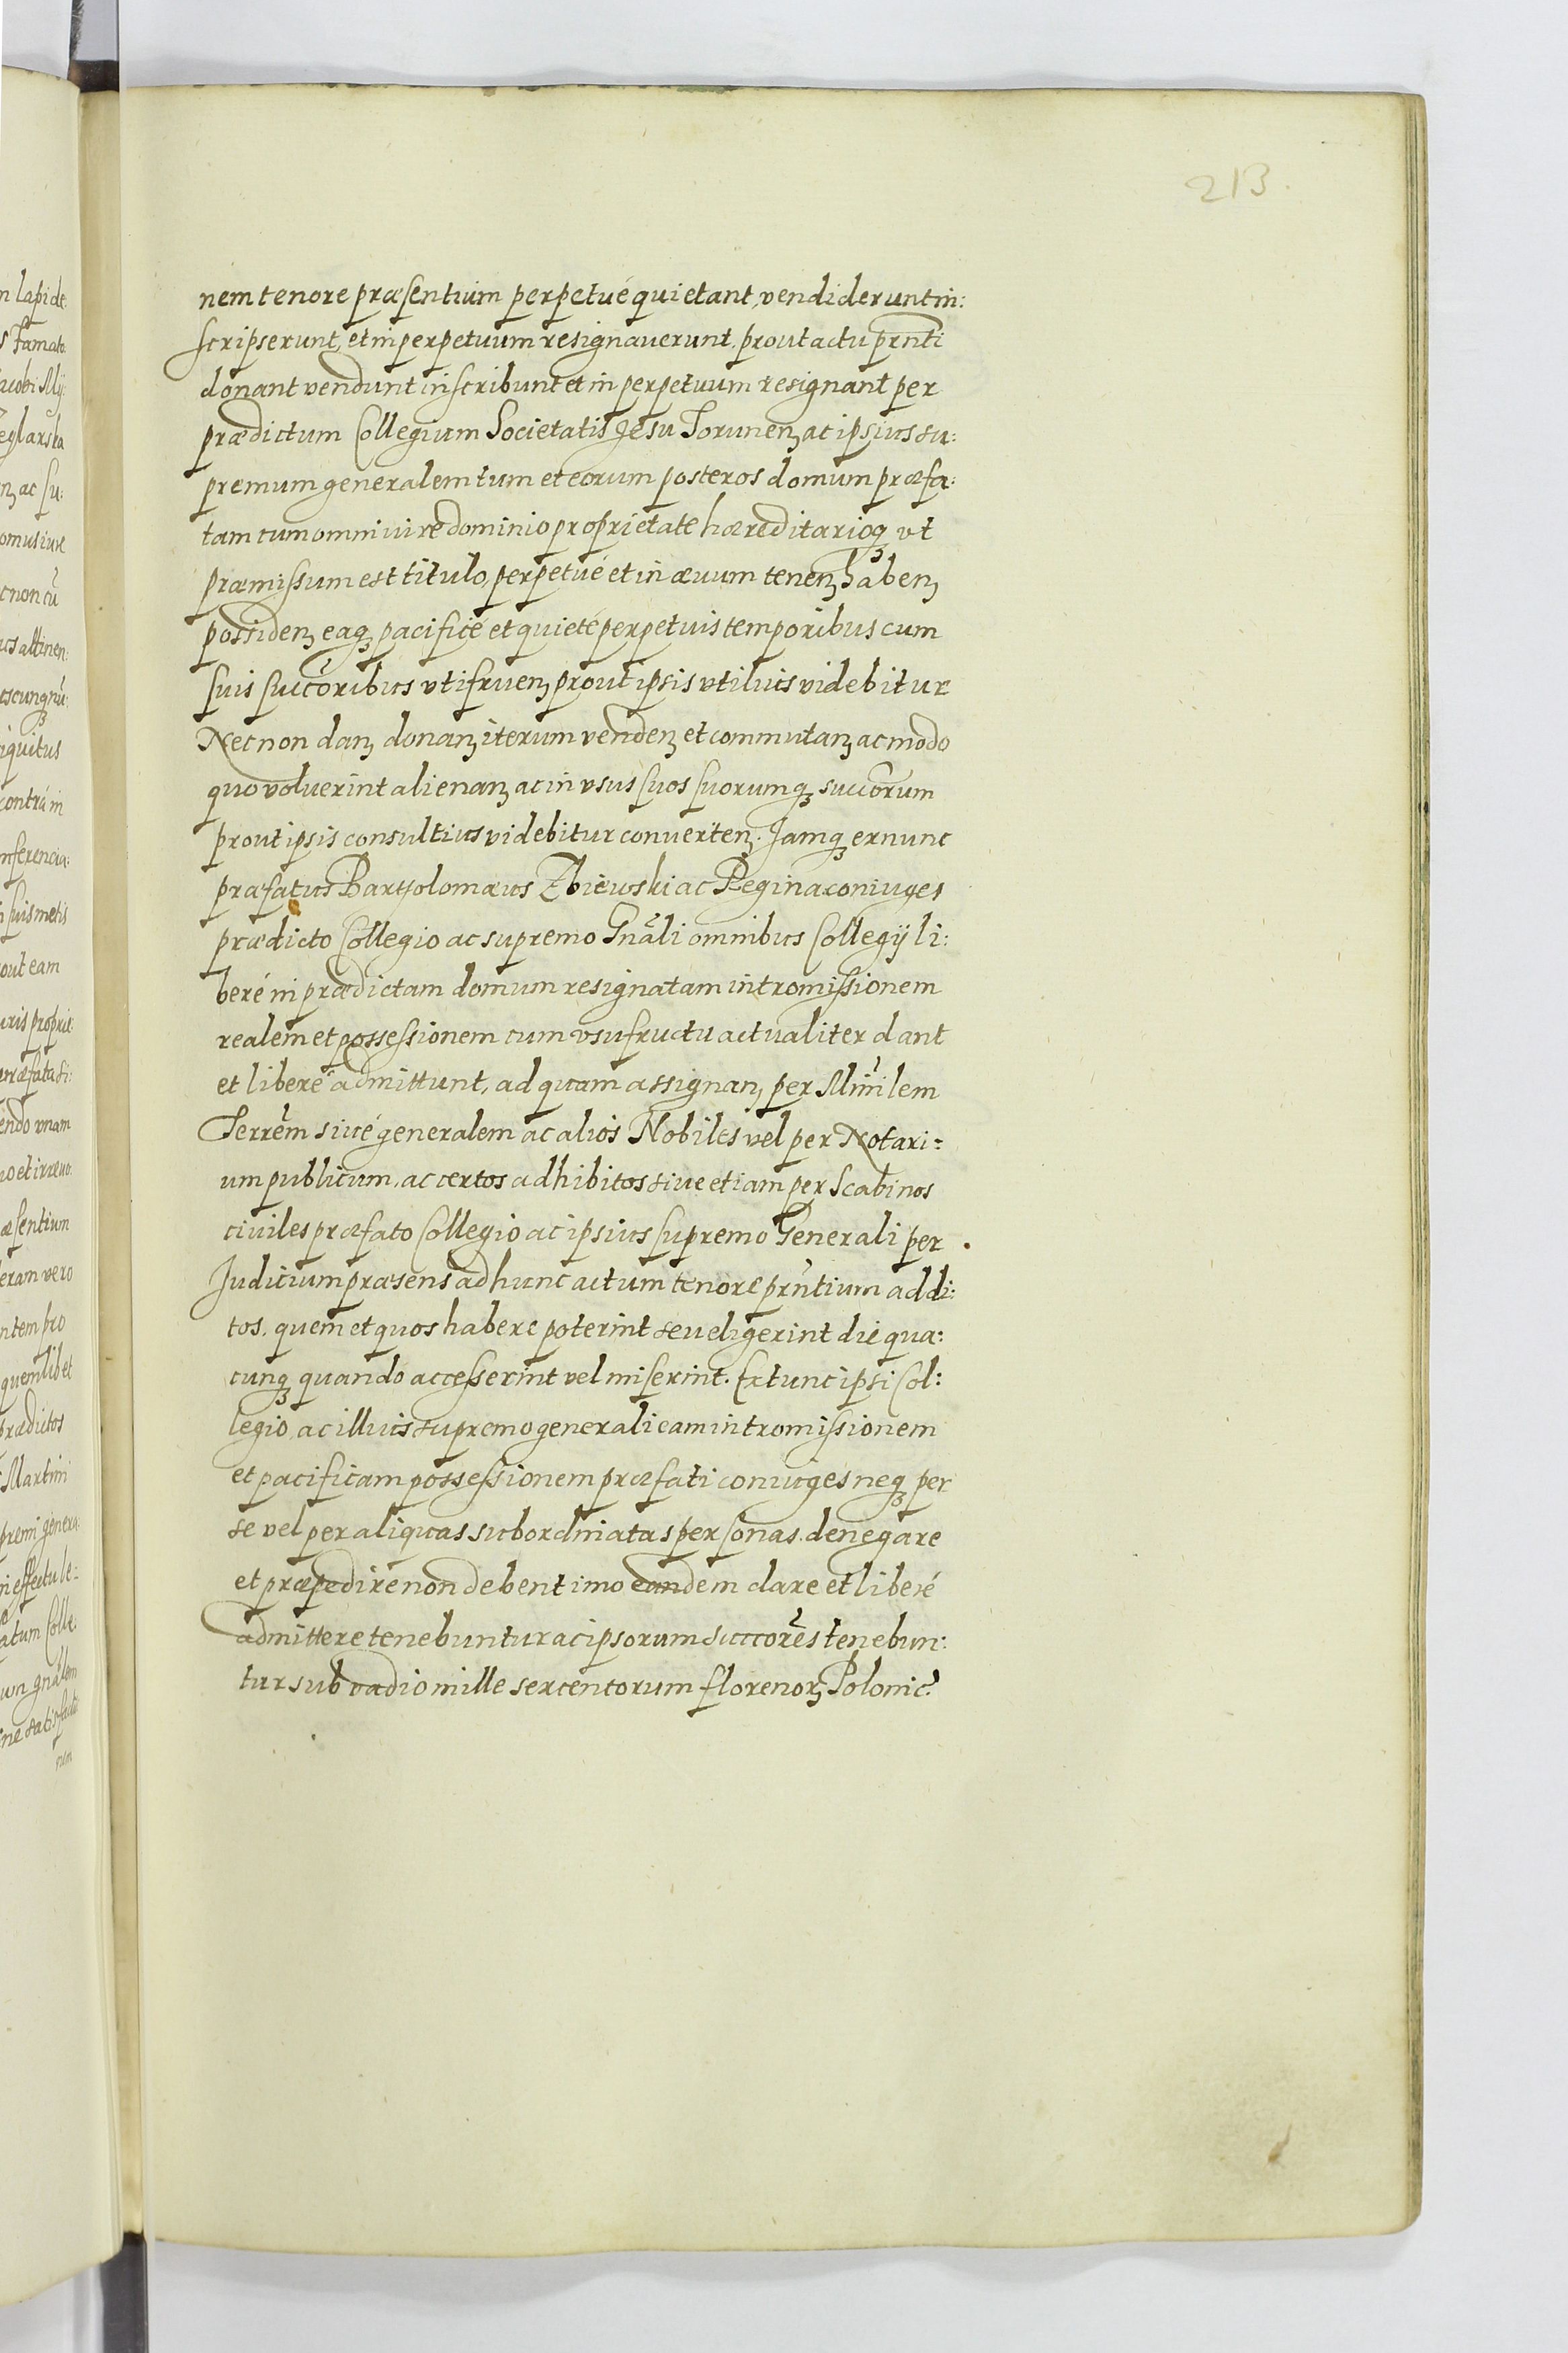 213.
nem tenore præsentium perpetué quietant, vendiderunt in:
scripserunt, et in perpetuum resignaverunt. prout actu prnti
donant vendunt inscribunt et in perpetuum resignant per
prædictum Collegium Societatis Jesu Torunenʒ ac ipsius su:
premum generalem tum et eorum posteros domum præfa:
tam cum omni iure dominio proprietate hæreditarioqʒ vt
præmissum est titulo, perpetué et in ævum tenenʒ habenʒ
possidenʒ eaqʒ pacificé et quieté perpetuis temporibus cum
suis succoribus vti fruenʒ prout ipsis vtilius videbitur
Necnon danʒ donanʒ iterum vendenʒ et commutanʒ ac modo
quo voluerint alienanʒ ac in vsus suos suorumqʒ succorum
prout ipsis consultius videbitur convertenʒ. Jamqʒ ex nunc
præfatus Bartholomæus Zbiewski ac Regina coniuges
prædicto Collegio ac supremo Gnali omnibus Collegÿ li:
beré in prædictam domum resignatam intromissionem
realem et possessionem cum vsufructu actualiter dant
et liberé admittunt, ad quam assignanʒ per Minrilem
Terrem siué generalem ac alios Nobiles vel per Notari=
um publicum, ac certos adhibitos siue etiam per Scabinos
ciuiles præfato Collegio ac ipsius supremo Generali per
Judicium præsens ad hunc actum tenore prntium addi:
tos. quem et quos habere poterint seu eligerint die qua:
cunqʒ quando accesserint vel miserint. Ex tunc ipsi Col:
legio, ac illius supremo generali eam intromissionem
et pacificam possessionem præfati coniuges neqʒ per
se vel per aliquas subordinatas personas. denegare
et præpedire non debent imo eandem dare et liberé
admittere tenebuntur ac ipsorum succores tenebun:
tur sub vadio mille sexcentorum florenorʒ Polonic.